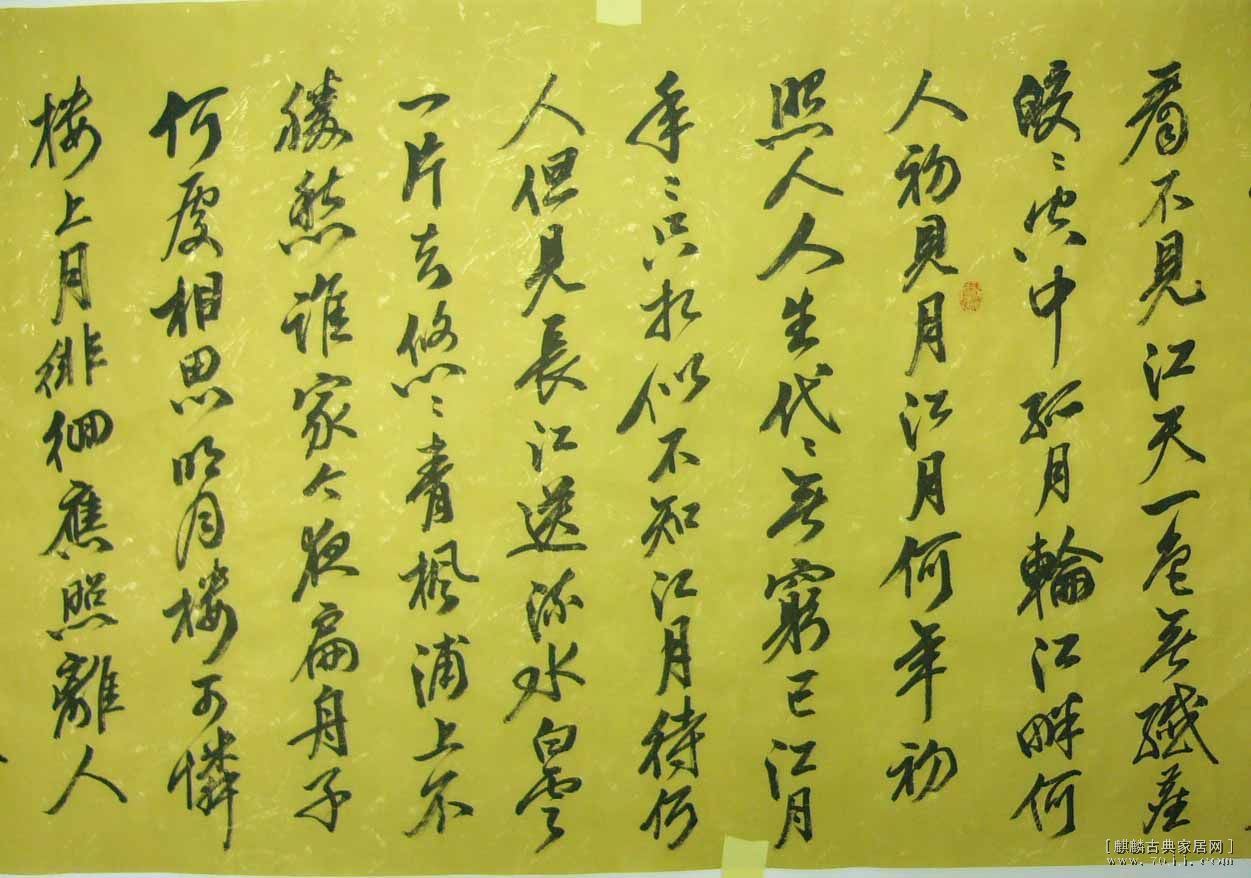 看不見江天一色無纖塵
皎〻空中孤月輪江畔何
人初見月江月何年初
照人人生代〻無窮已江月
年〻只相似不知江月待何
人但見長江送流水白雲
一片去悠〻青楓浦上不
勝愁誰家今夜扁舟子
何處相思明月樓可憐
樓上月徘徊應照離人
[麒麟古典家居网]
www.7ojj.com